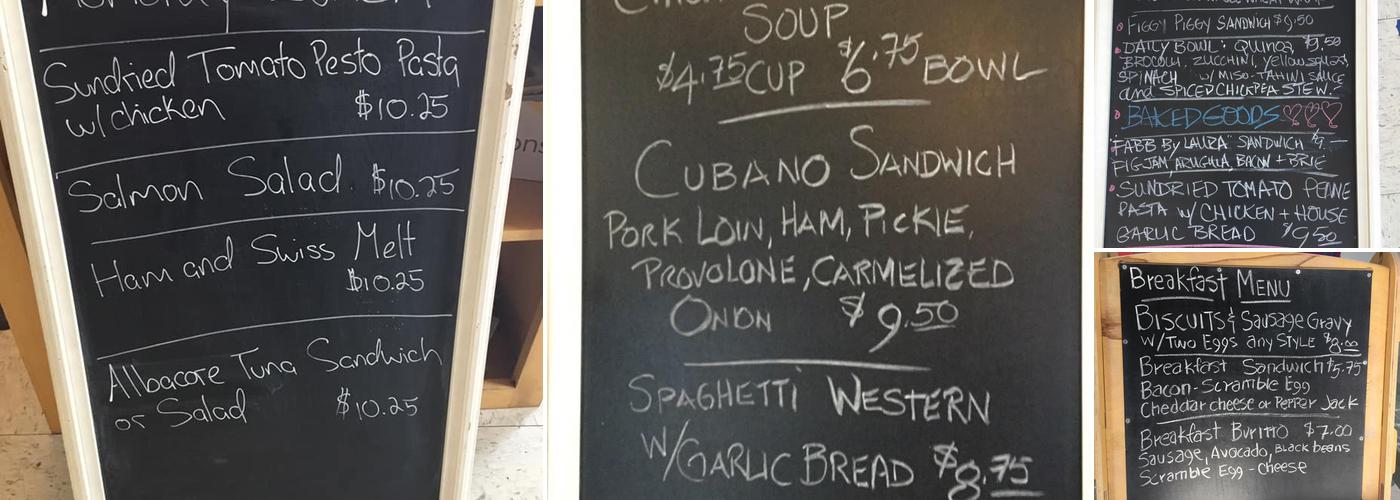 Sundried Tomato Pesto Pasta
w/chicken $10.25
Salmon Salad $10.25
Ham and Swiss Melt
$10.25
Albacore Tuna Sandwich
or Salad $10.25
SOUP
$4.75 CUP $6.75 BOWL
CUBANO SANDWICH
PORK LOIN, HAM, PICKLE,
PROVOLONE, CARMELIZED
ONON $9.50
SPAGHETTI WESTERN
W/GARLIC BREAD $8.75
FIGGY PIGGY SANDWICH $9.50
DAILY BOWL: QUINOA, $9.50
BROCOLI, ZUCCHINI, yellow squash,
SPINACH w/ MISO-TAHINI SAUCE
and SPICED CHICKPEA STEW.
BAKED GOODS
"FABB By LAURA" SANDWICH $9.—
FIG JAM, ARUGULA, BACON + BRIE
SUNDRIED TOMATO PENNE
PASTA w/ CHICKEN + HOUSE
GARLIC BREAD $9.50
Breakfast MENU
BISCUITS & Sausage Gravy
W/TWO EGGS any STYLE $8.00
Breakfast Sandwich $5.75
Bacon-Scramble Egg
Cheddar cheese or Pepper Jack
Breakfast Buritto $7.00
Sausage, Avocado, Black beans
Scramble Egg-cheese